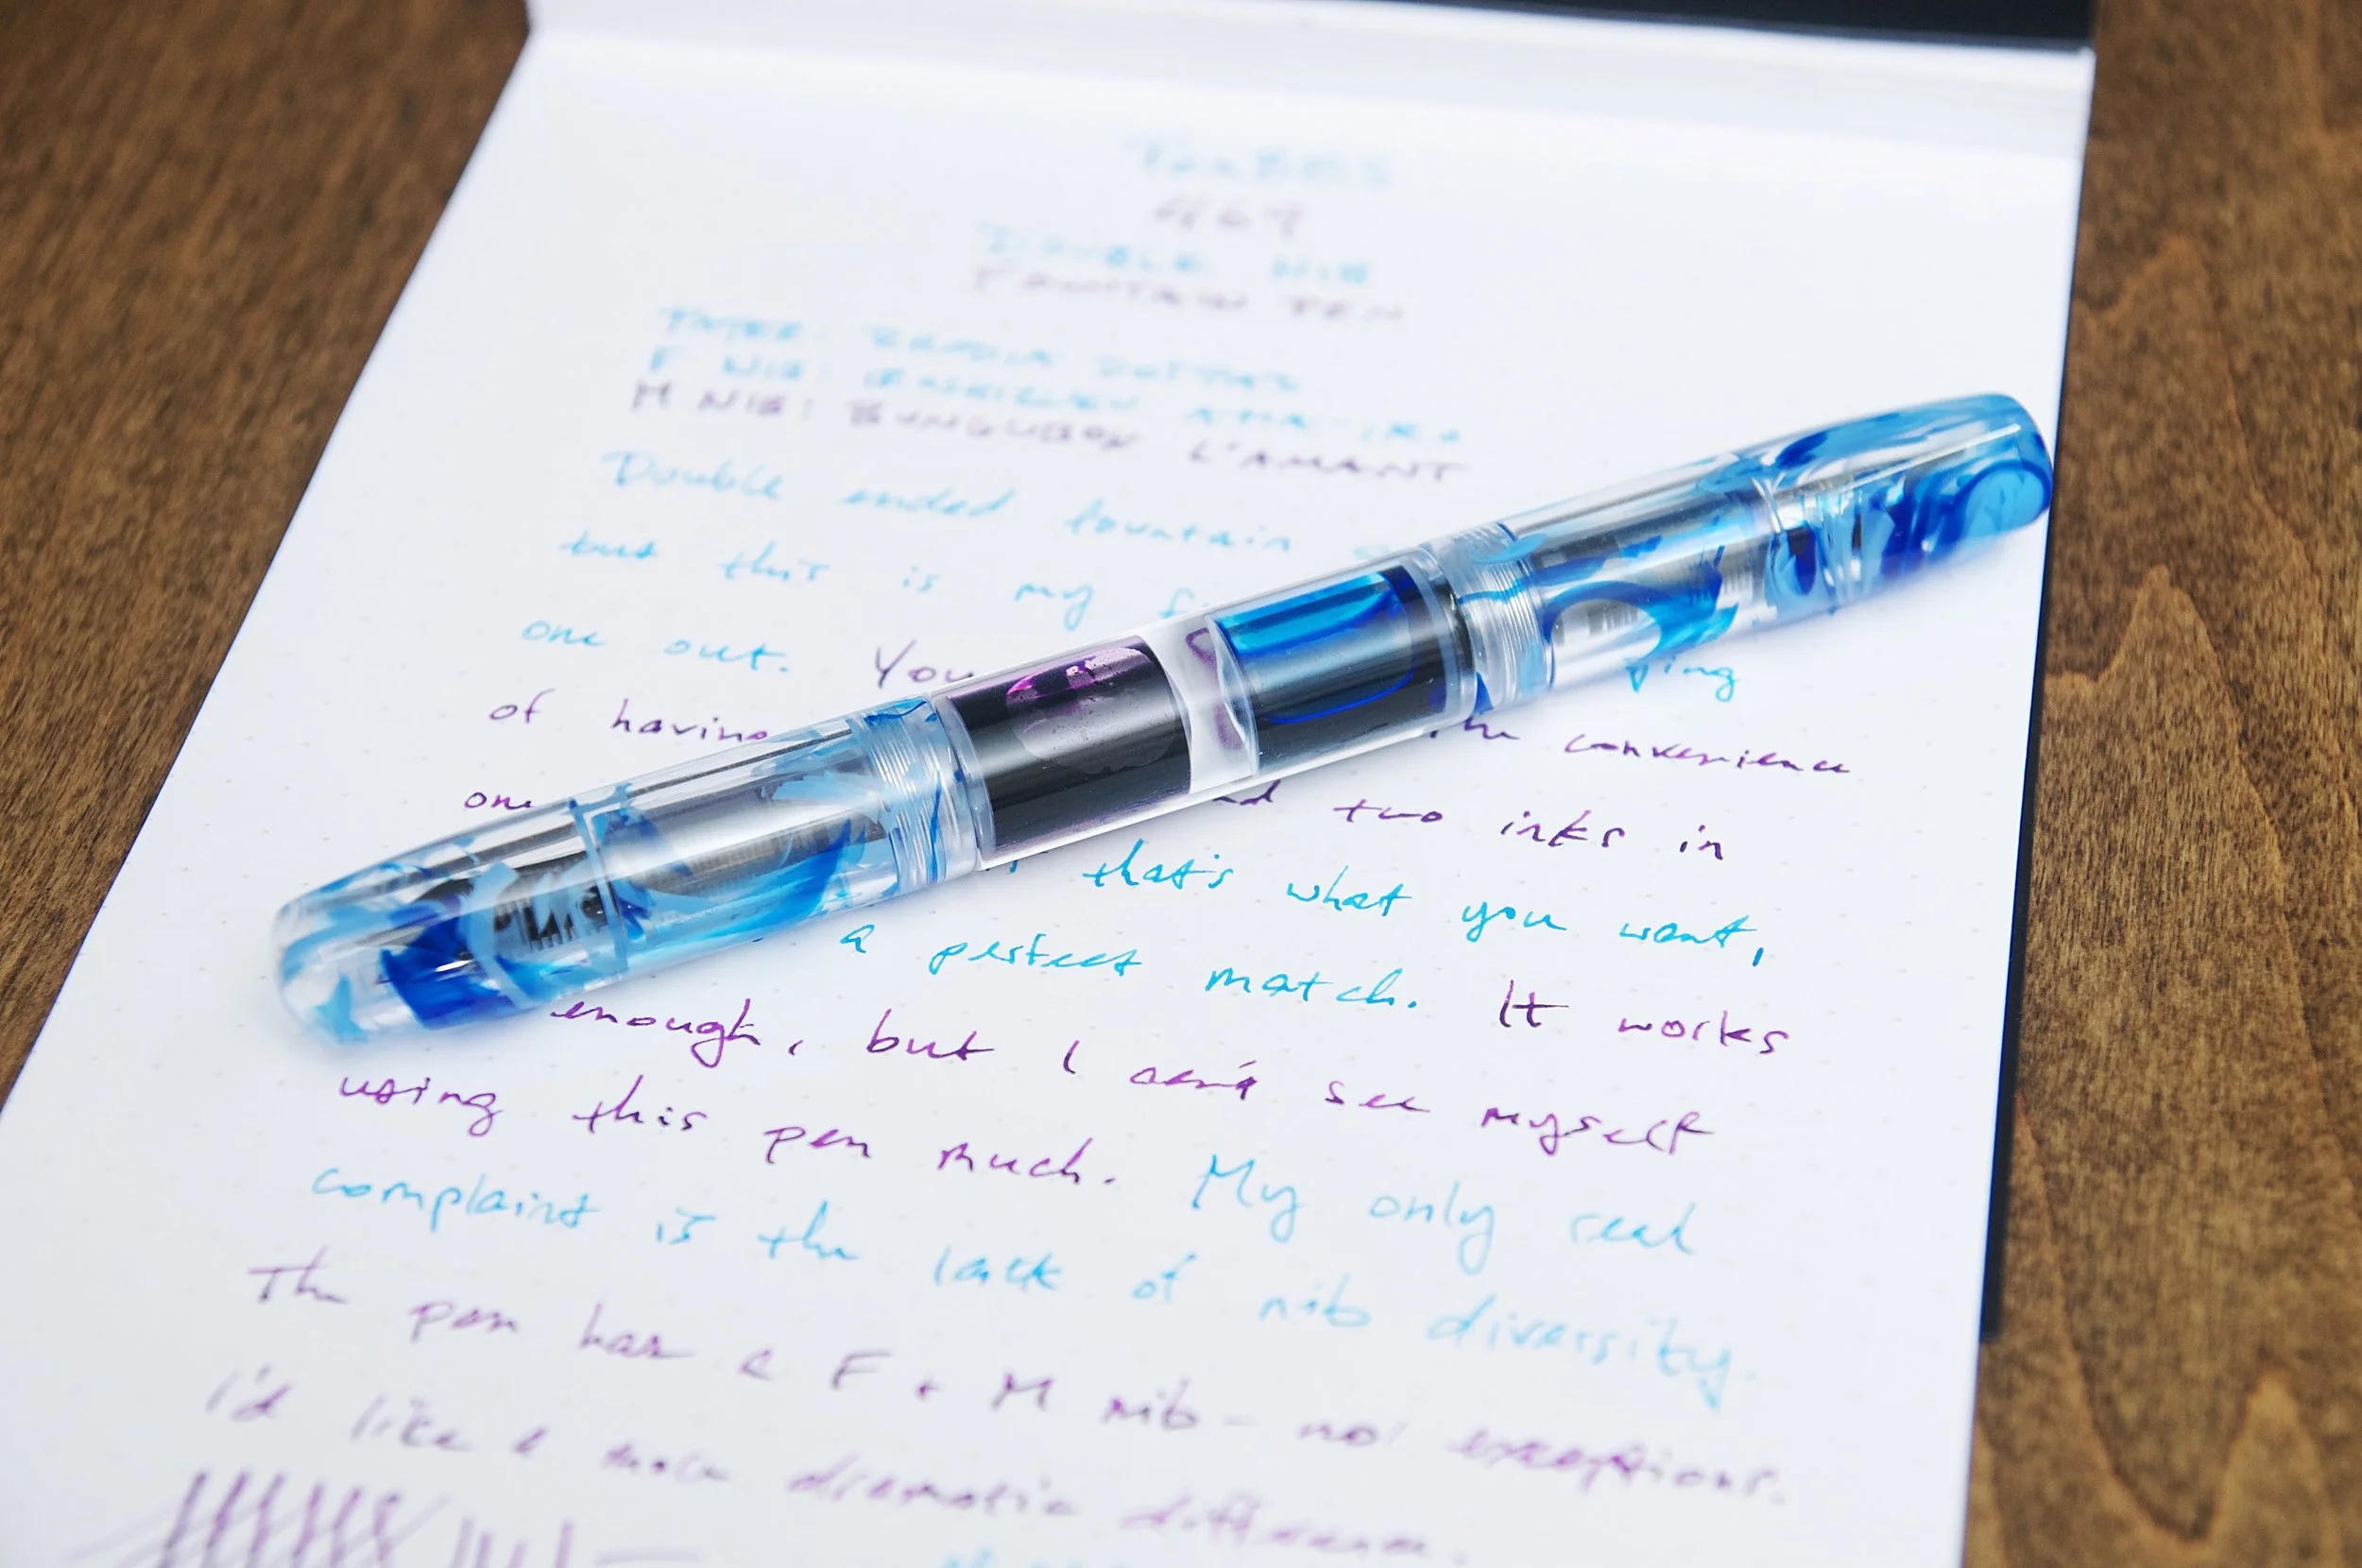 PenBBS
469
DOUBLE NIB
FOUNTAIN PEN
PAPER: RHODIA DOTPAD
F NIB: IROSHIZUKU AMA-IRO
M NIB: BUNGUBOX L'AMANT
Double ended fountain
but this is my
one out. You ying
of having the convenience
one two inks in
that's what you want,
a perfect match. It works
enough, but I can't see myself
using this pen much. My only real
complaint is the lack of nib diversity.
The pen has a F + M nib - no exceptions.
I'd like a more dramatic difference.